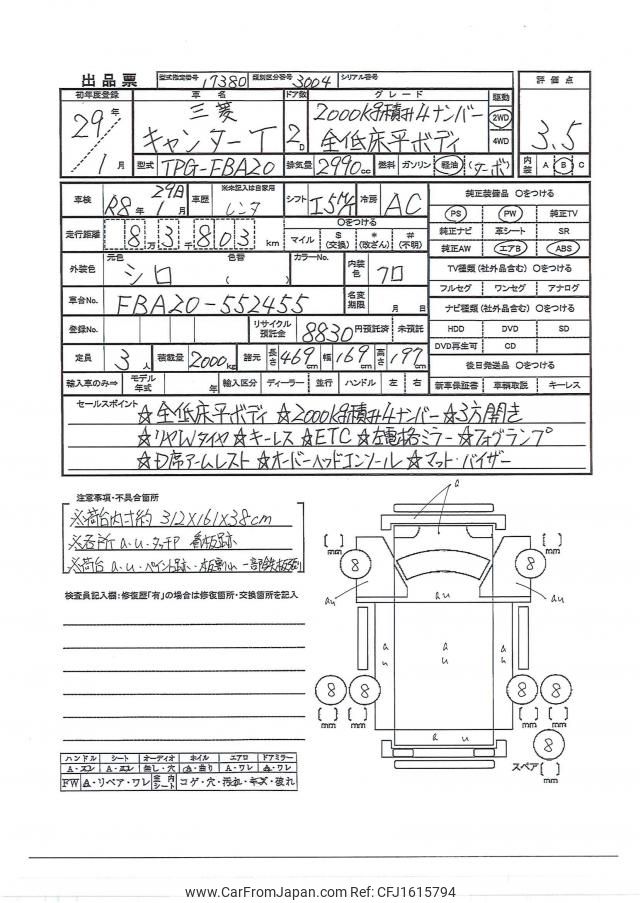 出品票 型式指定番号 17380 類別区分番号 3004 シリアル番号
初年度登録 車名 ドア数 グレード 駆動 評価点
29年 三菱 2D 2000kg積み4ナンバー 2WD 3.5
1月 キャンターT 全低床平ボディ 4WD
型式 TPG-FBA20 排気量 2990cc 燃料 ガソリン 軽油 (ターボ) 内装 A B C
車検 R8年 1月 29日 車歴 ※未記入は自家用 レンタ シフト I5MT 冷房 AC 純正装備品 〇をつける
PS PW 純正TV
走行距離 83803km 〇をつける
マイル $(交換) *(改ざん) #(不明) 純正ナビ 革シート SR
純正AW エアB ABS
外装色 元色 シロ 色替 ( ) カラーNo. 内装色 クロ TV種類(社外品含む) 〇をつける
フルセグ ワンセグ アナログ
車台No. FBA20-552455 名変期限 月 日 ナビ種類(社外品含む) 〇をつける
登録No. リサイクル預託金 8830円預託済 未預託 HDD DVD SD
DVD再生可 CD
定員 3人 積載量 2000kg 諸元 長さ 469 幅 169 高さ 197 後日発送品 〇をつける
輸入車のみ⇒ モデル年式 年 輸入区分 ディーラー 並行 ハンドル 左 右 新車保証書 車輌取説 キーレス
セールスポイント ☆全低床平ボディ ☆2000kg積み4ナンバー ☆3方開き
☆リヤWタイヤ ☆キーレス ☆ETC ☆左電格ミラー ☆フォグランプ
☆中席アームレスト ☆オーバーヘッドコンソール ☆マット・バイザー
注意事項・不具合箇所
※荷台内寸約 312×161×38cm
※各所 a.u.タッチP 看板跡
※荷台 a.u.ペイント跡・板割れ 一部鉄板張り
検査員記入欄:修復歴「有」の場合は修復箇所・交換箇所を記入
a
[ ] mm [ ] mm
8 8
au au au
a u a u a u
8 8 8 8
[ ] mm [ ] mm [ ] mm [ ] mm
8
スペア [ ] mm
ハンドル シート オーディオ ホイル エアロ ドアミラー
A・スレ A・スレ 無し・穴 A・曲り A・ワレ A・ワレ
FW A・リペア・ワレ 室内シート コゲ・穴・汚れ・キズ・破れ
www.CarFromJapan.com Ref: CFJ1615794